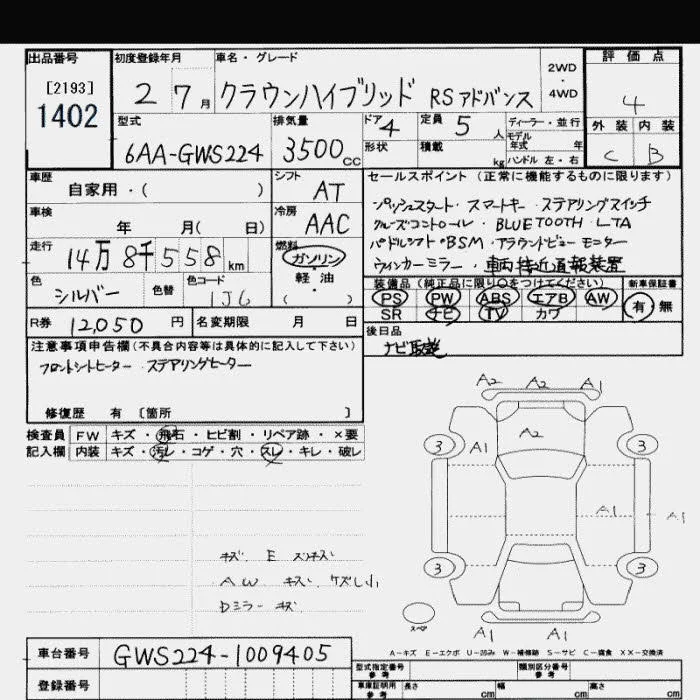 出品番号 初度登録年月 車名・グレード 2WD・4WD 評価点
[2193]
1402
2 7月 クラウンハイブリッド RSアドバンス 4
型式 排気量 ドア 4 定員 5人 ディーラー・並行 外装 内装
モデル年式 年
6AA-GWS224 3500cc 形状 積載 kg ハンドル 左・右 C B
車歴 シフト セールスポイント (正常に機能するものに限ります)
自家用・( ) AT
プッシュスタート・スマートキー・ステアリングスイッチ
車検 冷房
年 月( 日) AAC
クルーズコントロール・BLUETOOTH・LTA
パドルシフト・BSM・アラウンドビューモニター
走行 燃料
14万8千558km ガソリン・軽油・( )
ウィンカーミラー・車両接近通報装置
色 色替 色コード
シルバー 1J6
装備品(純正品に限り○をつけてください) 新車保証書
PS PW ABS エアB AW 有・無
SR ナビ TV カワ
R券 12,050円 名変期限 月 日
後日品
ナビ取説
注意事項申告欄(不具合内容等は具体的に記入して下さい)
フロントシートヒーター ステアリングヒーター
修復歴 有 [箇所 ]
検査員 FW キズ・飛石・ヒビ割・リペア跡・×要
記入欄 内装 キズ・汚レ・コゲ・穴・スレ・キレ・破レ
A2 A2 A1
A2
3 A1 3
A1 A1
3 3
スペア
A1 A1
キズ E スリキズ
AW キズ ケズレ小
Dミラー キズ
A-キズ E-エクボ U-凹み W-補修跡 S-サビ C-腐食 XX-交換済
車台番号 GWS224-1009405
登録番号
型式指定番号 参考 類別区分番号 参考
車庫証明用 参考 長さ cm 幅 cm 高さ cm